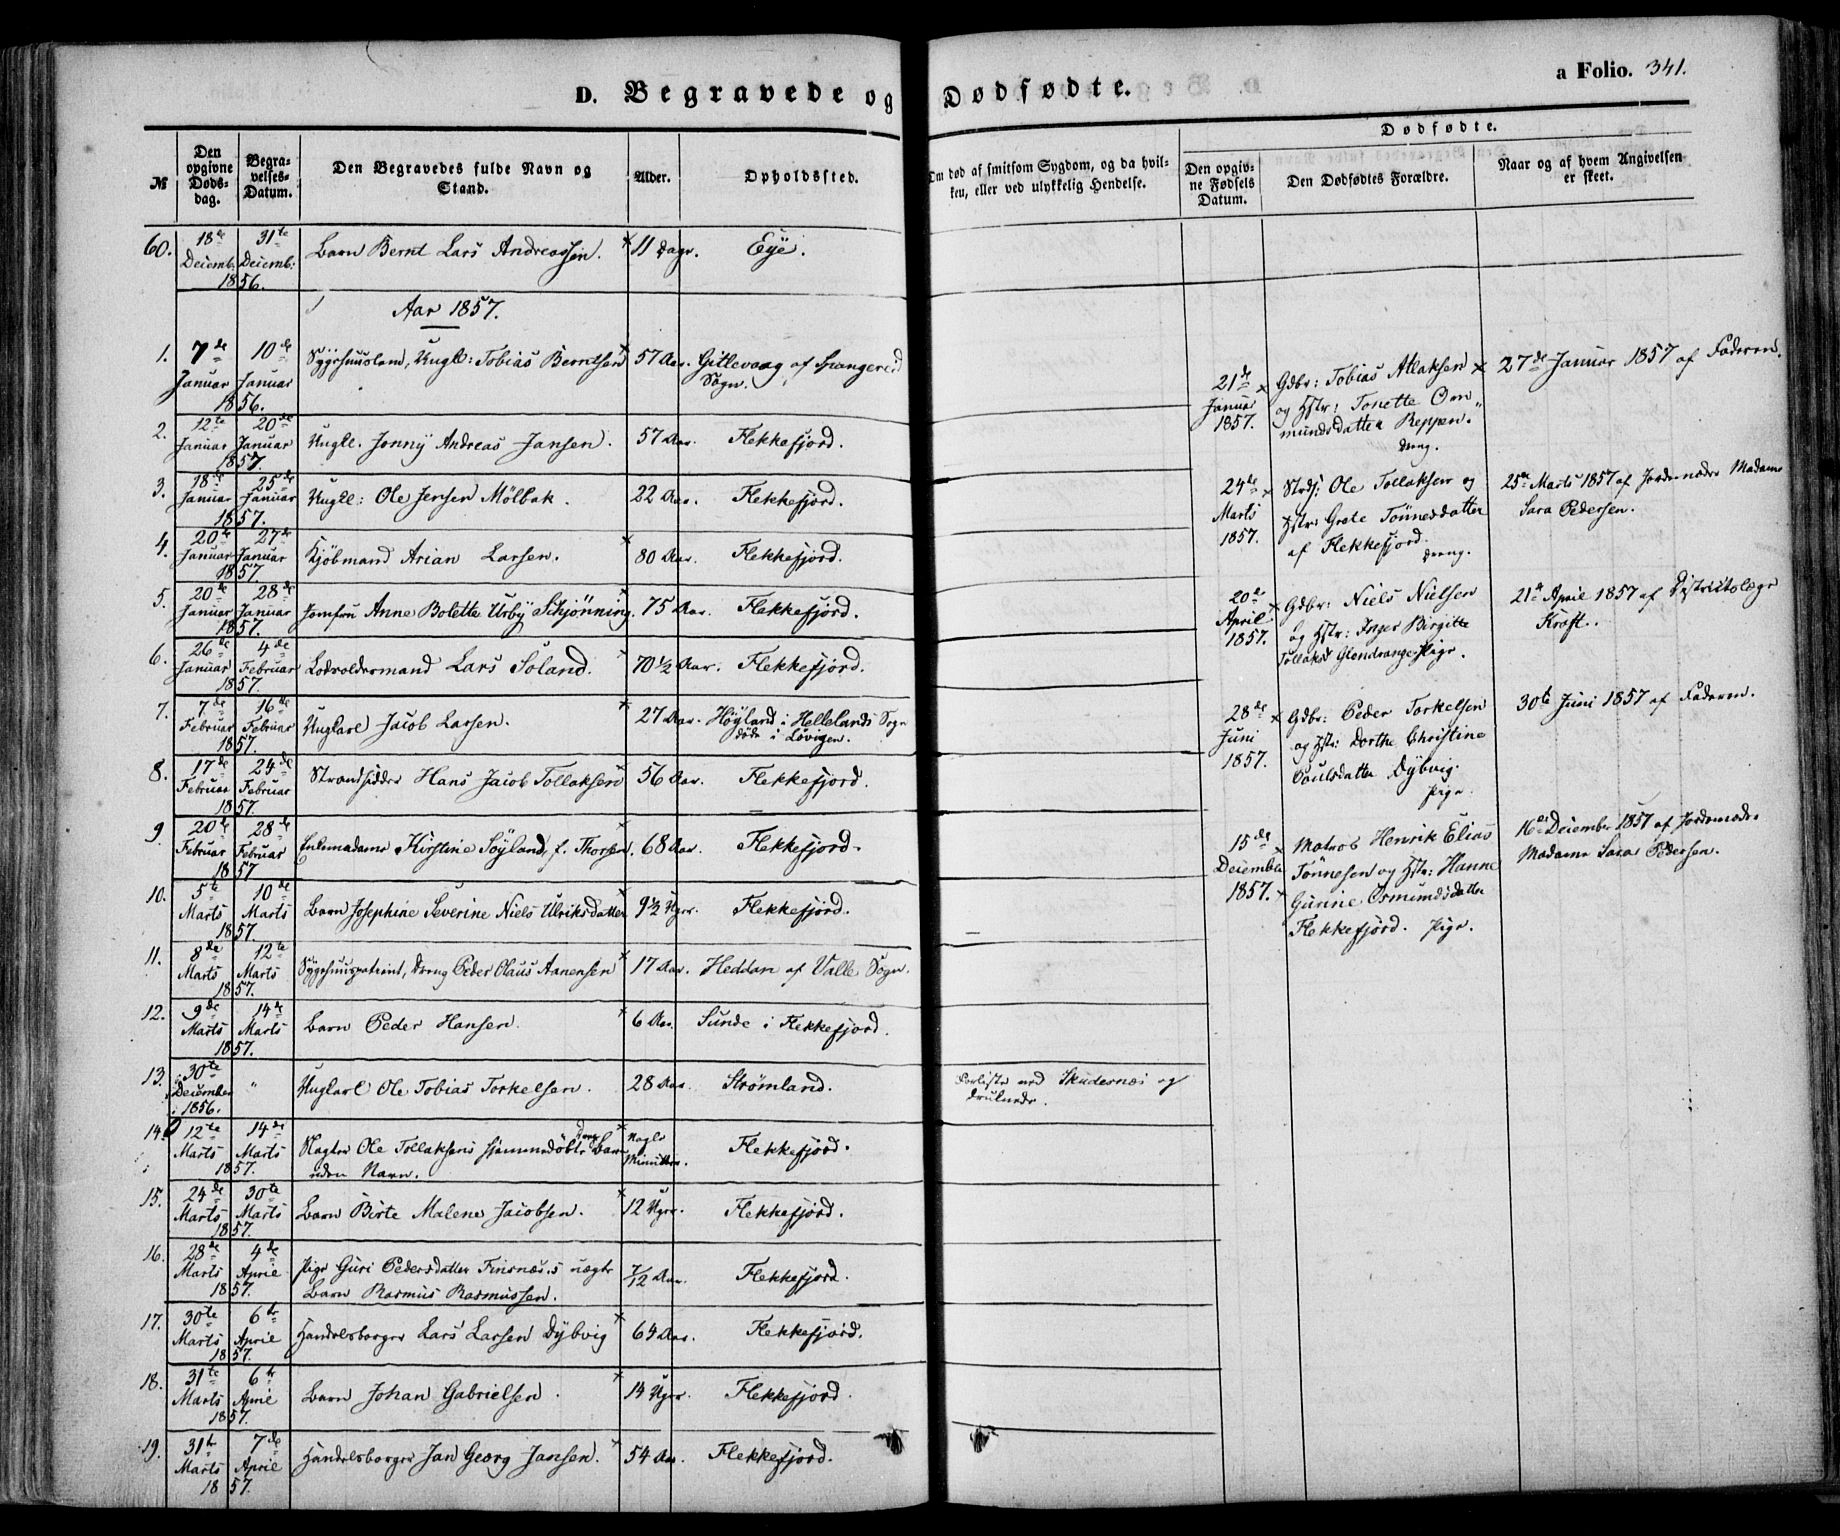 D. Begravede og Dødfødte.
a Folio. 341.
№
Den opgivne Døds-dag.
Begra-velses-Datum.
Den Begravedes fulde Navn og Stand.
Alder.
Opholdssted.
Om død af smitsom Sygdom, og da hvil-
ken, eller ved ulykkelig Hendelse.
Dødfødte.
Den opgiv-ne Fødsels Datum.
Den Dødfødtes Forældre.
Naar og af hvem Angivelsen er skeet.
60. 18de Decemb. 31te Decemb: 1856. Barn Bernt Lars Andreassen. 11 Dage. Eye.
Aar 1857.
1. 7de Januar 10de Januar 1856. Tobias Berntsen 57 Aar. Gitlevaag af Spangereid
Sogn.
2. 12te Januar 20de Januar 1857. Ungk. Jonny Andreas Jansen. 57 Aar. Flekkefjord.
3. 18de Januar 25de Januar 1857. Ungk: Ole Jensen Mölbak. 22 Aar. Flekkefjord.
4. 20de Januar 27de Januar 1857. Kjöbmand Arian Larsen. 80 Aar. Flekkefjord.
5. 20de Januar 28de Januar 1857. Jomfru Anne Bolette Urby Schjønning. 75 Aar. Flekkefjord.
6. 26de Januar 4de Februar 1857. Lodsoldermand Lars Soland. 70 1/2 Aar. Flekkefjord.
7. 7de Februar 16de Februar 1857. Ungkarl Jacob Larsen. 27 Aar. Höyland i Hellelands Sogn
døde i Lövigen.
8. 17de Februar 24de Februar 1857. Strandsidder Hans Jacob Tollaksen 56 Aar. Flekkefjord.
9. 20de Februar 28de Februar 1857 Enkemadame Kirstine Söyland, f. Thorsen. 68 Aar. Flekkefjord.
10. 5te Marts 10de Marts 1857 Barn Josephine Severine Niels Ulriksdatter 9 1/2 Uger. Flekkefjord.
11. 8de Marts 12te Marts 1857. Sygehuuspatient, Dreng Peder Claus Aanensen 17 Aar. Heddan af Valle Sogn.
12. 9de Marts 14de Marts 1857. Barn Peder Hansen. 6 Aar. Sunde i Flekkefjord.
13. 30te December 1856. " Ungkarl Ole Tobias Torkelsen. 28 Aar. Strømland. Forliste ved Skudesnæs og
druknede.
14. 12te Marts 14de Marts 1857. Ole Tollaksens hjemmedöbte Dreng Barn
uden Navn. Nogle Minutter. Flekkefjord.
15. 24de Marts 30te Marts 1857. Barn Birte Malene Jacobsen. 12 Uger. Flekkefjord.
16. 28de Marts 4de April 1857. Pige Guri Pedersdatter Finsnæs's uægte
Barn Rasmus Rasmussen. 7/12 Aar. Flekkefjord.
17. 30te Marts 6te April 1857. Handelsborger Lars Larsen Dybvig 64 Aar. Flekkefjord.
18. 31te Marts 6te April 1857. Barn Johan Gabrielsen. 14 Uger. Flekkefjord.
19. 31te Marts 7de April 1857. Handelsborger Jan Georg Jansen. 54 Aar. Flekkefjord.
21de Januar 1857. Gdbr: Tobias Atlaksen
og Hstr: Tonette Om-
mundsdatter Reppen.
Dreng.
27de Januar 1857 af Faderen.
24de Marts 1857. Strds: Ole Tollaksen og
Hstr: Grete Tönnesdatter
af Flekkefjord.
Dreng.
25de Marts 1857 af Jordemoder Madame
Sara Pedersen.
20de April 1857. Gdbr: Niels Nielsen
og Hstr: Inger Birgitte
Tollaksd Glendrange. Pige.
21de April 1857 af Districtslæge
Kraft.
28de Juni 1857. Gdbr: Peder Torkelsen
og Hstr: Dorthe Christine
Poulsdatter Dybvig.
Pige.
30te Juni 1857 af Faderen.
15de December 1857. Matros Henrik Elias
Tönnesen og Hstr: Hanne
Gurine Osmundsdatter
Flekkefjord. Pige.
16de December 1857 af Jordemoder
Madame Sara Pedersen.